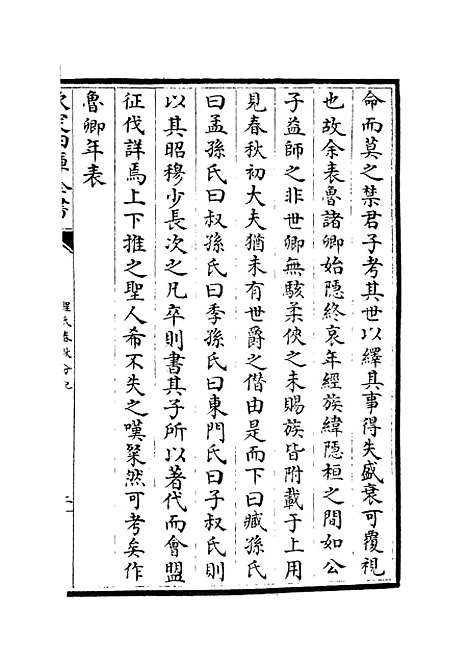 命而莫之禁君子考其世以繹其事得失盛衰可覆視
也故余表魯諸卿始隱終哀年經族緯隱桓之間如公
子益師之非世卿無駭柔俠之未賜族皆附載于上用
見春秋初大夫猶未有世爵之僭由是而下曰臧孫氏
曰孟孫氏曰叔孫氏曰季孫氏曰東門氏曰子叔氏則
以其昭穆少長次之凡卒則書其子所以著代而會盟
征伐詳焉上下推之聖人希不失之嘆粲然可考矣作
魯卿年表
欽定四庫全書
程氏春秋分記